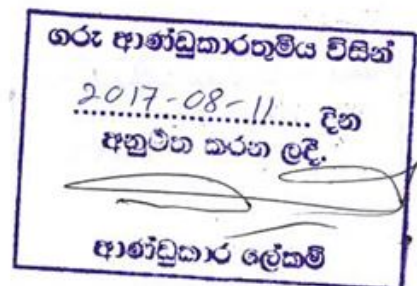 ගරු ආණ්ඩුකාරතුමිය විසින්
2017-08-11 දින
අනුමත කරන ලදී.
ආණ්ඩුකාර ලේකම්